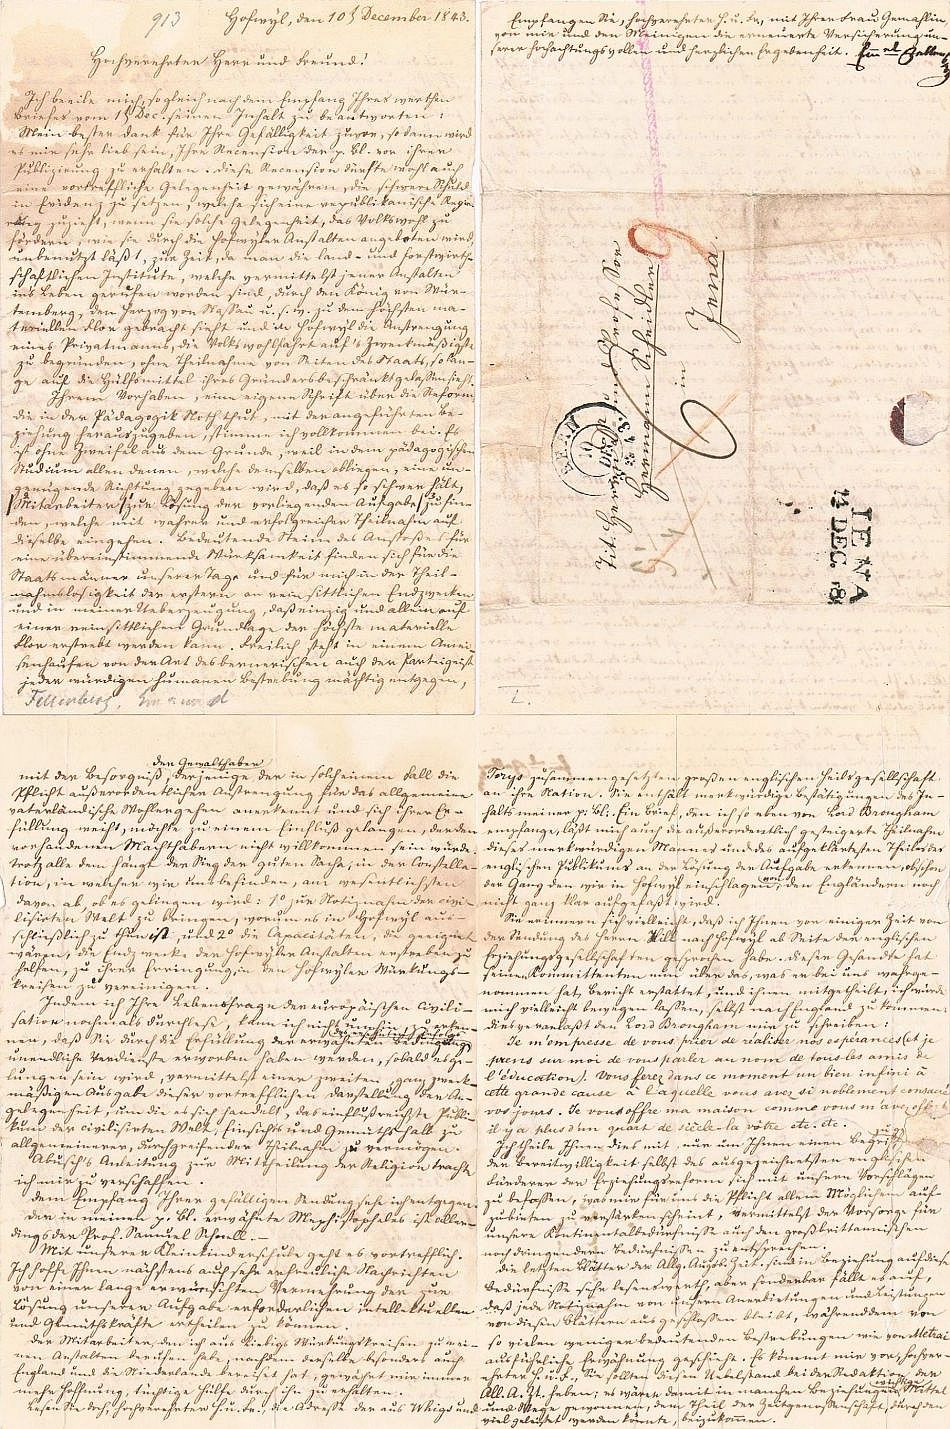 913 Hofwyl, den 10t December 1843.
Hochverehrter Herr und Freund!
Ich beeile mich, sogleich nach dem Empfang Ihres werthen
Briefes vom 1t Dec. seinen Inhalt zu beantworten:
Mein bester Dank für Ihre Gefälligkeit zuvor, so dann wird
es mir sehr lieb sein, Ihre Recension der p. Bl. vor ihrer
Publizirung zu erhalten. Diese Recension dürfte wohl auch
eine vortreffliche Gelegenheit gewähren, die schwere Schuld
in Evidenz zu setzen, welche sich eine republikanische Regie-
rung zuzieht, wenn sie solche Gelegenheit, das Volkswohl zu
fördern, wie sie durch die Hofwyler Anstalten angeboten wird,
unbenutzt läßt, zur Zeit, da man die land- und forstwirth-
schaftlichen Institute, welche vermittelst jener Anstalten
ins Leben gerufen worden sind, durch den König von Wür-
temberg, den Herzog von Nassau u.s.w. zu dem höchsten ma-
teriellen Flor gebracht sieht und in Hofwyl die Anstrengung
eines Privatmanns, die Volkswohlfahrt auf's Zweckmäßigste
zu begründen, ohne Theilnahme von Seiten des Staats, so lan-
ge auf die Hülfsmittel ihres Gründers beschränkt gelassen sieht.
Ihrem Vorhaben, eine eigene Schrift über die Reform
die in der Pädagogik Noth thut, mit der angeführten Be-
ziehung herauszugeben, stimme ich vollkommen bei. Es
ist ohne Zweifel aus dem Grunde, weil in dem pädagogischen
Studium allen denen, welche demselben obliegen, eine un-
genügende Richtung gegeben wird, daß es so schwer hält,
Mitarbeiter zur Lösung der vorliegenden Aufgabe zu fin-
den, welche mit wahrer und erfolgreicher Theilnahm auf
dieselbe eingehen. Bedeutende Steine des Anstoßes für
eine übereinstimmende Würksamkeit finden sich für die
Staatsmänner unserer Tage und für mich in der Theil-
nahmslosigkeit der erstern an rein sittlichen Endzwecken
und in meiner Ueberzeugung, daß einzig und allein auf
einer reinsittlichen Grundlage der höchste materielle
Flor erstrebt werden kann. Freilich steht in einem Amei-
senhaufen von der Art des bernerischen auch der Parteigeist
jeder würdigen humanen Bestrebung mächtig entgegen,
Fellenberg, Emanuel
Empfangen Sie, hochverehrter H. u. Fr., mit Ihrer Frau Gemahlin
von mir und den Meinigen die erneuerte Versicherung un-
serer hochachtungsvollen und herzlichen Ergebenheit. Em.el Fellenb
Hermann Scheidler
in
Jena.
BERN
IENA
14 DEC. 184
L.
der Gewalthaber
mit der Besorgniß, derjenige der in solch einem Fall die
Pflicht außerordentlicher Anstrengung für das allgemeine
vaterländische Wohlergehen anerkennt und sich ihrer Er-
füllung weiht, möchte zu einem Einfluß gelangen, der den
vorhandenen Machthabern nicht willkommen sein würde.
Trotz alle dem hängt der Sieg der guten Sache, in der Constella-
tion, in welcher wir uns befinden, am wesentlichsten
davon ab, ob es gelingen wird: 1o zur Notiznahm der civi-
lisirten Welt zu bringen, worum es in Hofwyl aus-
schließlich zu thun ist, und 2o die Capacitäten, die geeignet
wären, die Endzwecke der Hofwyler Anstalten erstreben zu
helfen, zu ihrer Erringung, in den Hofwyler Würkungs-
kreisen zu vereinigen.
Indem ich Ihre Lebensfrage der europäischen Civili-
sation nochmals durchlese, kann ich nicht umhin zu erken-
nen, daß Sie durch die Erfüllung der
unendliche Verdienste erworben haben werden, sobald es ge-
lungen sein wird, vermittelst einer zweiten, ganz zweck-
mäßigen Ausgabe dieser vortrefflichen Darstellung der An-
gelegenheit, um die es sich handelt, das einflußreichste Publi-
kum der civilisirten Welt, Einsichts und Gemüths halb zu
allgemeinerer, durchgreifender Theilnahm zu vermögen.
Abusch's Anleitung zur Mittheilung der Religion trachte
ich mir zu verschaffen.
Dem Empfang Ihrer gefälligen Sendung sehe ich entgegen.
Der in meinen p. Bl. erwähnte Mephistopheles ist aller-
dings der Prof. Samuel Schnell. —
Mit unserer Kleinkinderschule geht es vortrefflich.
Ich hoffe Ihnen nächstens auch sehr erfreuliche Nachrichten
von einer lange erwünschten Vermehrung der zur
Lösung unserer Aufgabe erforderlichen intellektuellen
und Gemüthskräfte ertheilen zu können.
Der Mitarbeiter, den ich aus Liebigs Würkungskreisen zu mei-
nen Anstalten berufen habe, nachdem derselbe besonders auch
England und die Niederlande bereiset hat, gewährt mir immer
mehr Hoffnung, tüchtige Hülfe durch ihn zu erhalten.
Lesen Sie doch, hochverehrter H. u. Fr., die Adresse der aus Whigs und
Torys zusammengesetzten großen englischen Heilsgesellschaft
an ihre Nation. Sie enthält merkwürdige Bestätigungen des In-
halts meiner p. Bl. Ein Brief, den ich so eben von Lord Brougham
empfange, läßt mich auch die außerordentlich gesteigerte Theilnahm
dieses merkwürdigen Mannes und des aufgeklärtesten Theiles des
englischen Publikums an der Lösung der Aufgabe erkennen, obschon
der Gang den wir in Hofwyl einschlagen, von den Engländern noch
nicht ganz klar aufgefaßt wird.
Sie erinnern sich vielleicht, daß ich Ihnen vor einiger Zeit von
der Sendung des Herrn Hill nach Hofwyl ab Seite der englischen
Erziehungsgesellschaften gesprochen habe. Dieser Gesandte hat
seinen Committenten nun über das, was er bei uns wahrge-
nommen hat, Bericht erstattet, und ihnen mitgetheilt, ich würde
mich vielleicht bewegen lassen, selbst nach England zu kommen;
dies veranlaßt den Lord Brougham mir zu schreiben:
Je m'empresse de vous prier de réaliser nos espérances (et je
prens sur moi de vous parler au nom de tous les amis de
l'éducation). Vous ferez dans ce moment un bien infini à
cette grande cause à laquelle vous avez si noblement consacré
vos jours. Je vous offre ma maison comme vous m'avez offert
il y a plus d'un quart de siècle la vôtre etc. etc.
Ich theile Ihnen dies mit, nur um Ihnen einen Begriff
der Bereitwilligkeit selbst des ausgezeichnetsten englischen
Förderer der Erziehungsreform sich mit unsern Vorschlägen
zu befassen, was mir für uns die Pflicht allem Möglichen auf-
zubieten zu verstärken scheint, vermittelst der Vorsorge für
unsere Kontinentalbedürfnisse auch den großbrittannischen
noch dringendern Bedürfnissen zu entsprechen.
Die letzten Blätter der Allg. Augsb. Zeit. sind in Beziehung auf diese
Bedürfnisse sehr lesenswerth, aber sonderbar fällt es auf,
daß jede Notiznahm von unsern Anerbietungen und Leistungen
von diesen Blättern ausgeschlossen bleibt, währenddem von
so vielen weniger bedeutenden Bestrebungen wie von Metrai
ausführliche Erwähnung geschieht. Es kömmt mir vor, hochver-
ehrter H. u. Fr., Sie sollten diesen Uebelstand bei der Redaktion der
All. A. Zt. heben; es wären damit in manchen Beziehungen wichtige Mittel
und Wege gewonnen, dem Theil der Zeitgenossenschaft, durch den
viel geleistet werden könnte, beizukommen.